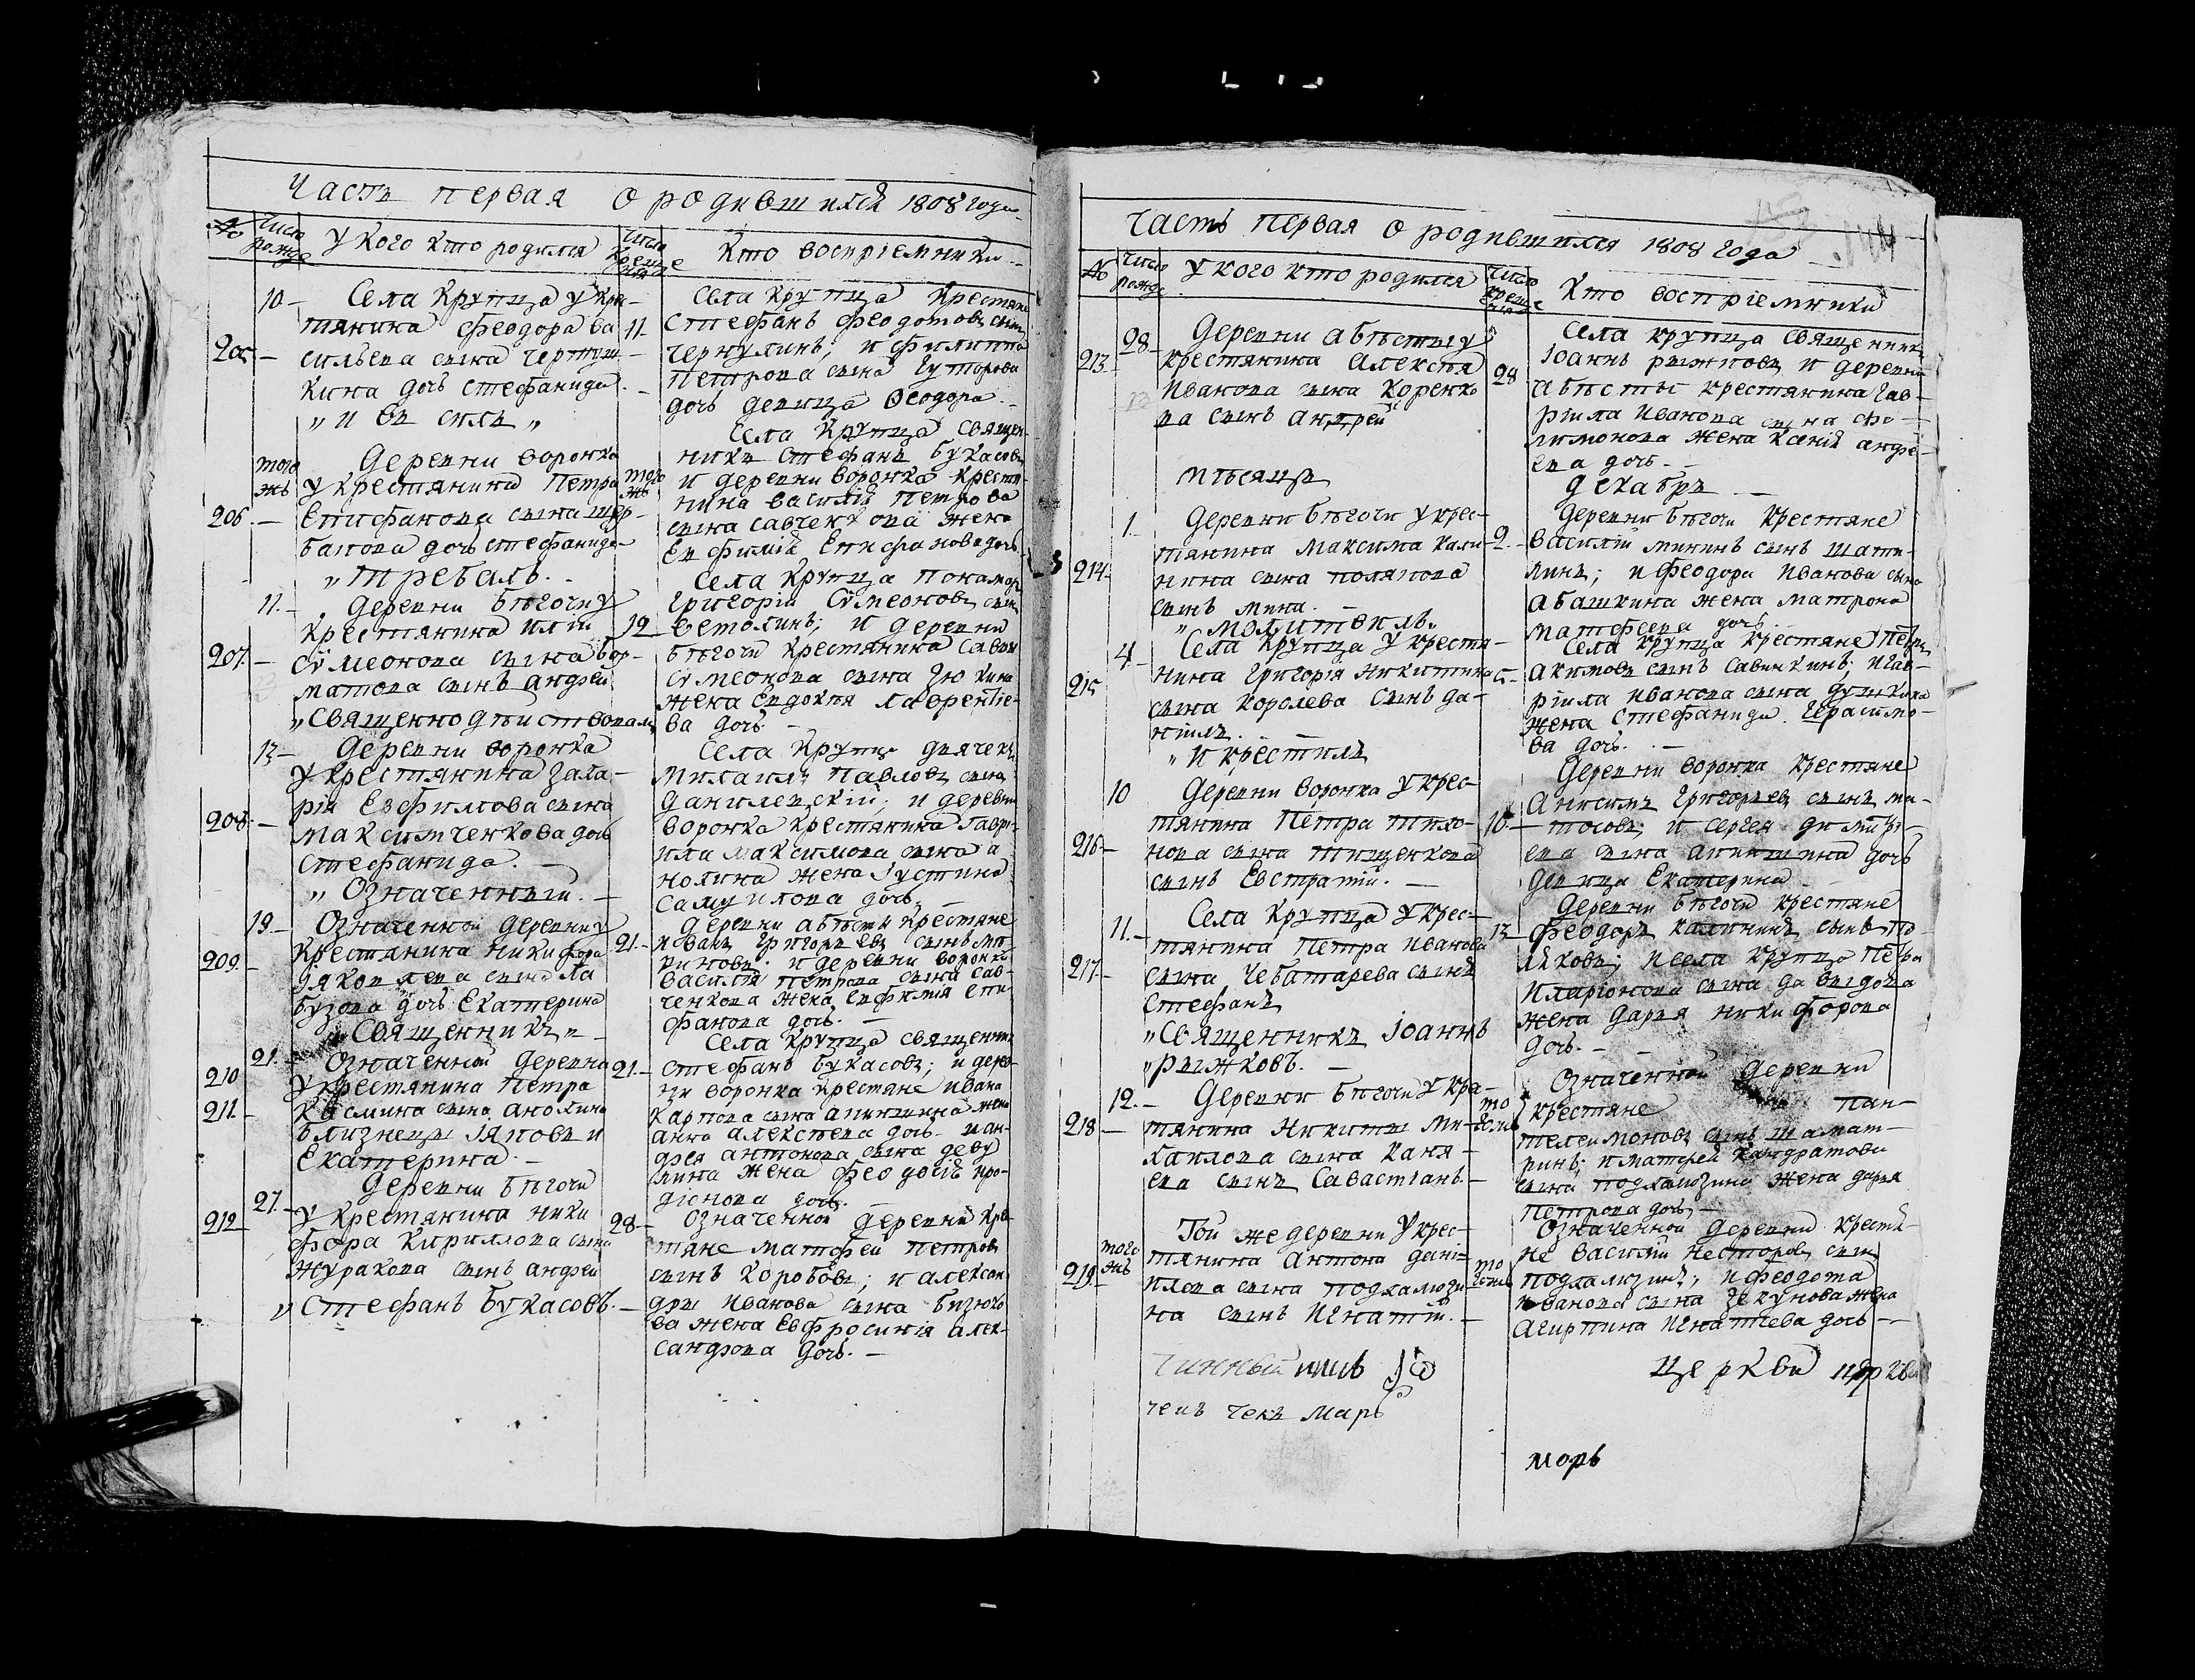 Часть первая о родившихся 1808 года
№
Число рожде
У кого кто родился
Число креще ния
Кто воспріемники
10 – Села Крупца у кре–
тянина Феодора Ва
205 – сильева сына Чертуш–
кина дочь Стефанида
„ И вс силъ „
11 Села Крупца крестяне
Стефанъ Феодотовъ сынъ
Чернулинъ; и Филиппа
Петрова сына Гуторова
дочь девица Феодора. –
того жъ Деревни Воронка
у крестянина Петра
206. – Епифанова сына Щер–
бакова дочь Стефанида
„ Требалъ. –
того жъ Села Крупца священ–
никъ Стефанъ Букасовъ
и деревни Воронка крестя–
нина Василія Петрова
сына Савченкова жена
Евфимія Епифанова дочь
11. – Деревни Бѣгочи у
крестянина Иліи
207. – Сѵмеонова сына Бор–
матова сынъ Андрей
„ Священнодѣйствовалъ
12 Села Крупца понамарь
Григорій Сѵмеоновъ сынъ
Ветолинъ; и деревни
Бѣгочи крестянина Савы
Сѵмеонова сына Зюкина
жена Евдокія Лаврентіе–
ва дочь –
17 – Деревни Воронка
у крестянина Заха–
рія Евфимова сына
208. – Максимченкова дочь
Стефанида. –
„ Означенный. –
Села Крупца дьячекъ
Михаилъ Павловъ сынъ
Данилевскій; и деревни
Воронка крестянина Гаврі–
ила Максимова сына а
нохина жена Іустина
Самуилова дочь. –
19. – Означенной деревни у
крестянина Никифора
209. – Іяковлева сына Ла
бузова дочь Екатерина
„ Священникъ „ –
21. – Деревни Абѣсты крестяне
Иванъ Григорьевъ сынъ Ма–
риновъ; и деревни Воронка
Василія Петрова сына Сав–
ченкова жена Евфимія Епи–
фанова дочь. –
21. – Означенной деревни
210 у крестянина Петра
211. – Космина сына Анохина
близнецы Іяковъ и
Екатерина –
21. – Села Крупца священникъ
Стефанъ Букасовъ; и дерев–
ни Воронка крестяне Ивана
Карпова сына Апишина жена
Анна Алексѣева дочь и ан–
дрея Антонова сына Деву
лина жена Феодосія Иро–
діонова дочь. –
27. – Деревни Бѣгочи
212 у крестянина Ники
фора Кириллова сына
Журакова сынъ Андрей
„ Стефанъ Букасовъ. –
28. – Означенной деревни кре–
тяне Матфей Петровъ
сынъ Коробовъ; и алексан
дры Иванова сына Бизюко
ва жена Евфросинія Алек–
сандрова дочь. –
Часть первая о родившихся 1808 года
№
Число рожде
У кого кто родился
Число креще ния
Кто воспріемники
28 – Деревни Абѣсты у
213 – крестянина Алексѣя
Иванова сына Коренко
ва сынъ Андрей
28 Села Крупца священникъ
Іоаннъ Рыжковъ и деревни
Абѣсты крестянина Гав–
ріила Иванова сына Фи–
лимонова жена Ксенія Андре–
ева дочь. –
мѣсяцъ
декабрь –
1. Деревни Бѣгочи у крес–
тянина Максима Кали–
214 – нина сына Полякова
сынъ Мина. –
„ Молитвилъ.
2. – Деревни Бѣгочи крестяне
Василій Мининъ сынъ Шати–
линъ; и Феодора Иванова сына
Абашкина жена Матрона
Матфеева дочь
4 – Села Крупца у крестя–
215 нина Григорія Никитина
сына Королева сынъ Да–
ніилъ. –
„ и крестилъ
5 – Села Крупца крестяне Петръ
Акимовъ сынъ Савинкинъ; и Гав–
ріила Иванова сына Душкина
жена Стефанида Герасимо–
ва дочь. –
10 Деревни Воронка у крес–
тянина Петра Тихо–
216 – нова сына Тищенкова
сынъ Евстратій. –
10. – Деревни Воронка крестяне
Анисимъ Григорьевъ сынъ Ма–
тосовъ; и Сергея Димитрі–
ева сына Апишина дочь
девица Екатерина
11. – Села Крупца у крес–
тянина Петра Иванова
217. – сына Чеботарева сынъ
Стефанъ
„ Священникъ Іоаннъ
„ Рыжковъ. –
12 Деревни Бѣгочи крестяне
Феодоръ Калининъ сынъ По–
ляковъ; и села Крупца Петра
Иларіонова сына Давыдова
жена Дарья Никифорова
дочь. –
12. – Деревни Бѣгочи у кре–
218 – тянина Никиты Ми–
хаилова сына Каня–
ева сынъ Савастіанъ. –
Означенной деревни
крестяне Пан–
телеимоновъ сынъ Шамат–
ринъ; и Матфей Кондратова
сына Подхалюзина жена Дарья
Петрова дочь –
того жъ Той же деревни у крес–
тянина Антона Дани–
219 – илова сына Подхалюзи–
на сынъ Игнатій. –
Означенной деревни крестя–
не Василій Несторовъ сынъ
Подхалюзинъ; и Феодота
Иванова сына Чекунова жена
Агирпина Игнатіева дочь –
церкви
морь